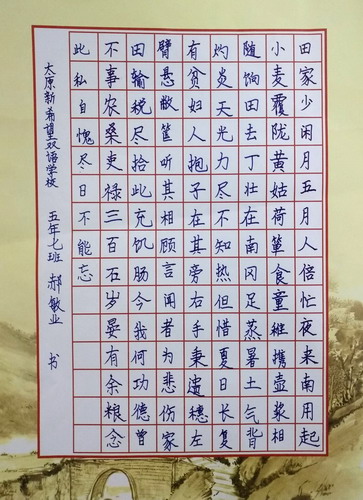 田家少闲月五月人倍忙夜来南用起
小麦覆陇黄姑荷箪食童稚携壶浆相
随饷田去丁壮在南冈足蒸暑土气背
灼炎天光力尽不知热但惜夏日长复
有贫妇人抱子在其旁右手秉遗穗左
臂悬敝筐听其相顾言闻者为悲伤家
田输税尽拾此充饥肠今我何功德曾
不事农桑吏禄三百石岁晏有余粮念
此私自愧尽日不能忘
太原新希望双语学校 五年七班 郝敏业 书